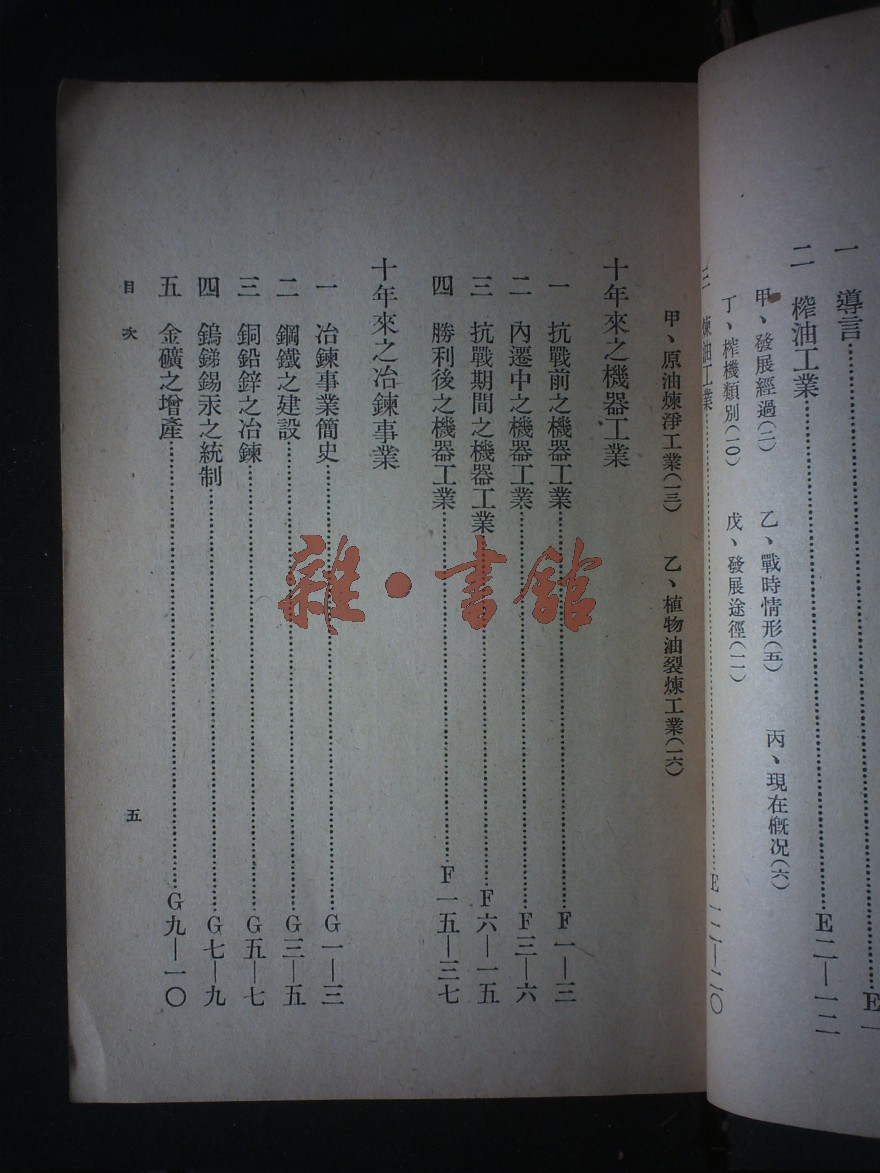 一 導言……E一
二 榨油工業……E二—一二
甲、發展經過(二) 乙、戰時情形(五) 丙、現在概況(六)
丁、榨機類別(一〇) 戊、發展途徑(一一)
三 煉油工業……E一二—二〇
甲、原油煉淨工業(一三) 乙、植物油裂煉工業(一六)
十年來之機器工業
一 抗戰前之機器工業……F一—三
二 內遷中之機器工業……F三—六
三 抗戰期間之機器工業……F六—一五
四 勝利後之機器工業……F一五—三七
十年來之冶鍊事業
一 冶鍊事業簡史……G一—三
二 鋼鐵之建設……G三—五
三 銅鉛鋅之冶鍊……G五—七
四 鎢銻錫汞之統制……G七—九
五 金礦之增產……G九—一〇
目次 五
雜·書館